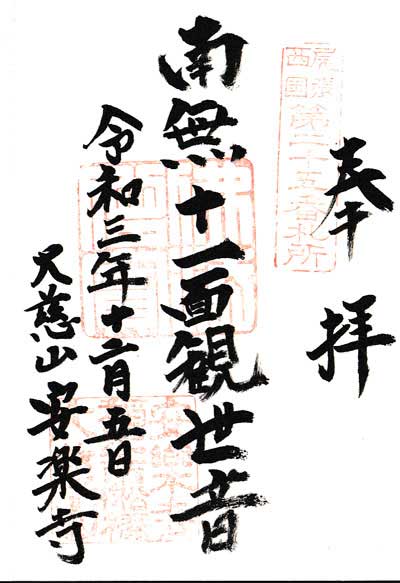 奉拝
尾張西国第二十五番札所
南無十一面観世音
令和三年十二月五日
大慈山安楽寺